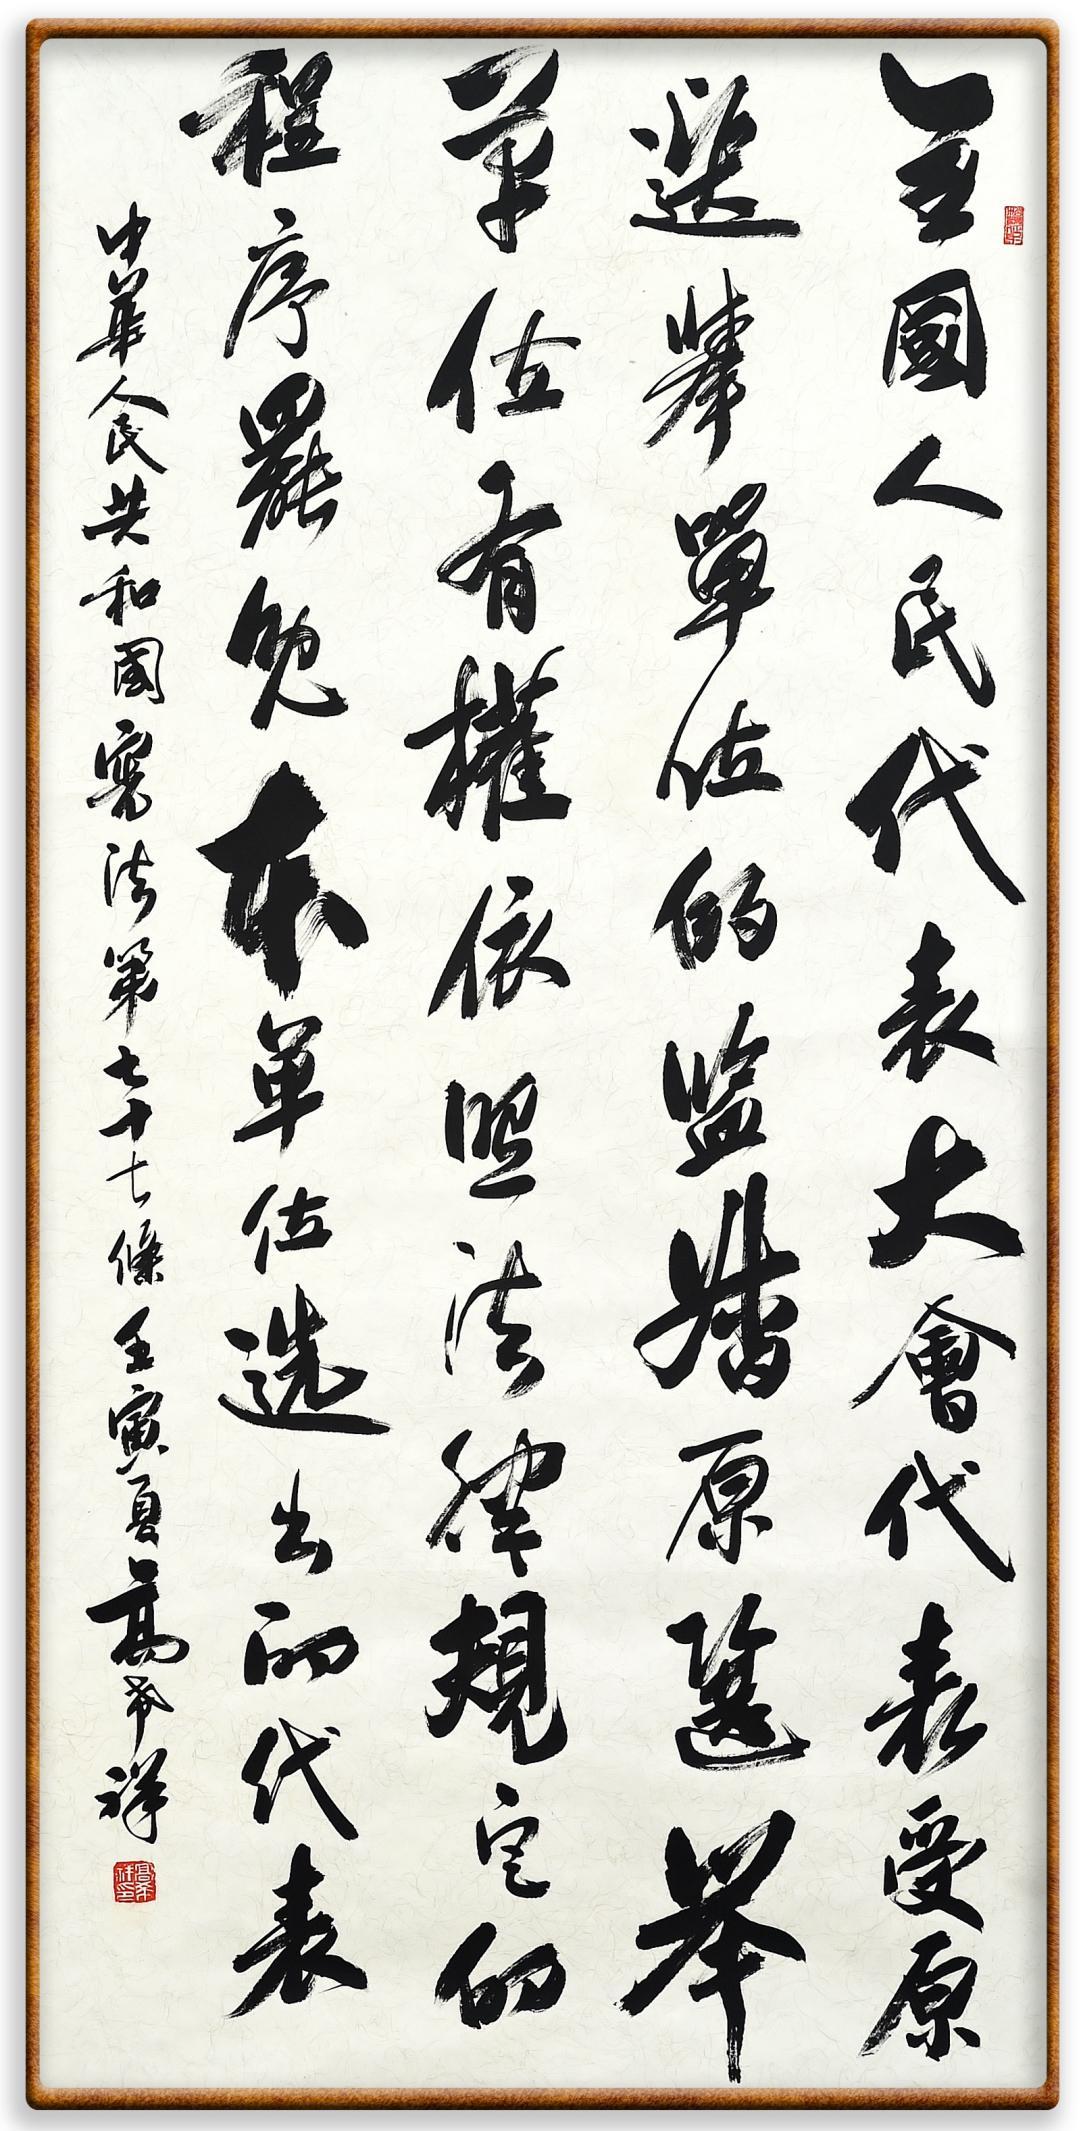 全國人民代表大會代表受原
選舉單位的监督原選举
单位有權依照法律規定的
程序罷免本单位选出的代表
中華人民共和国憲法第七十七條壬寅夏高希祥
高希祥印